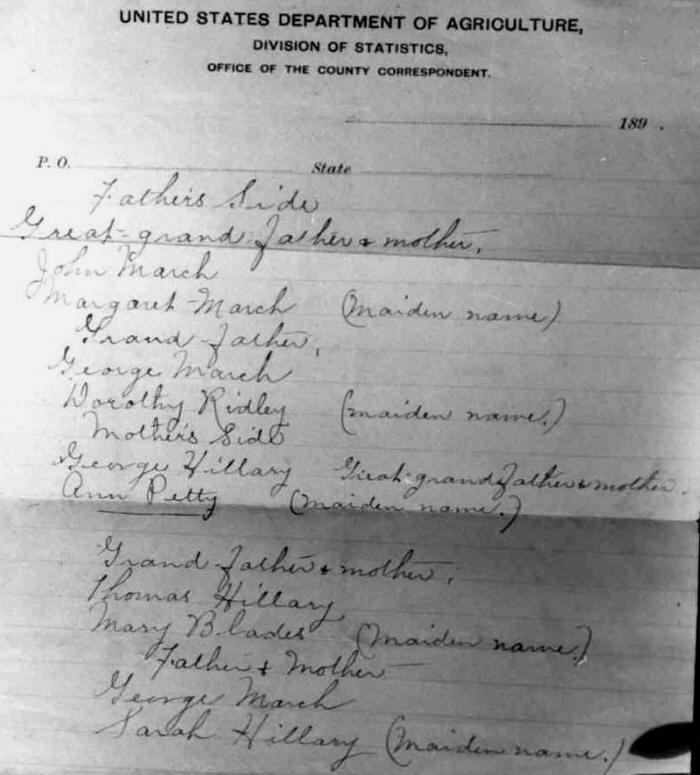 UNITED STATES DEPARTMENT OF AGRICULTURE,
DIVISION OF STATISTICS,
OFFICE OF THE COUNTY CORRESPONDENT.
189 .
P. O. State
Father's Side
Great-grand father & mother.
John March
Margaret March (Maiden name)
Grand father,
George March
Dorothy Ridley (maiden name.)
Mother's Side
George Hillary Great-grandfather & mother.
Ann Petty (Maiden name.)
Grand father & mother,
Thomas Hillary
Mary Blades (Maiden name.)
Father & Mother
George March
Sarah Hillary (Maiden name.)